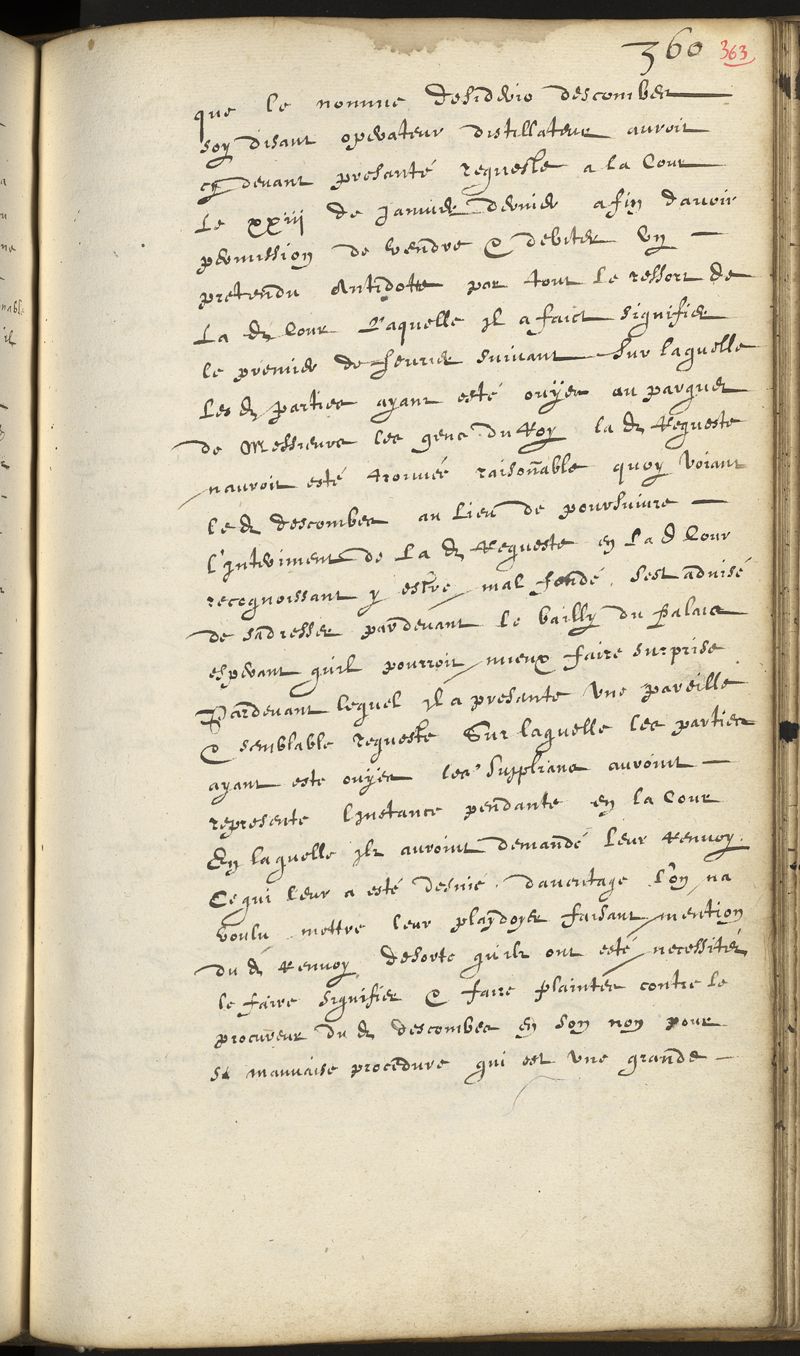 360 363
que le nomme desiderio descombes
soy disant operateur distillateur auroit
cy devant presanté requeste a la Cour
Le xxiij de Janvier dernier afin davoir
permission de vendre & debiter un
pretendu Antidote par tout le ressort de
La d Cour Laquelle il a faict signifier
le premier de fevrier suivant Sur laquelle
Les d parties ayant esté ouyes au parquet
de Messieurs les gens du Roy la d Requeste
nauroit esté trouvée raisonnable quoy voiant
le d descombes au Lieu de poursuivre
l'Interiment de La d Requeste en La d Cour
recognoissant y estre mal fondé sest advisé
de sadresser pardevant le bailly du Palais
esperant quil pourroit mieux faire surprise
Pardevant lequel il a presante une pareille
& semblable requeste Sur laquelle les parties
ayant este ouyes les Supplians auroint
represente linstance pendante en la Cour
En laquelle ilz auroint demandé leur Renvoy
Ce qui leur a esté desnié daventage l'on na
voulu mettre leur playdoyer faisant mention
du d Renvoy desorte quilz ont esté necessités
le faire signifier & faire plaintes contre le
procureur du d descombes en son non pour
sa mauvaise procedure qui est une grande